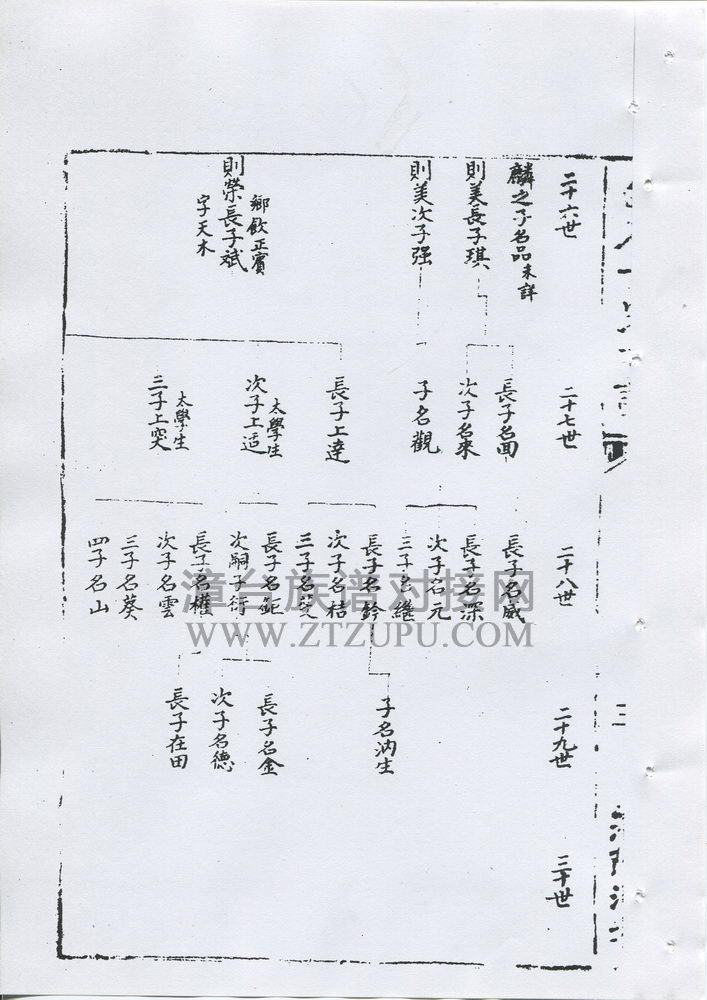 二十六世
麟之子名品未詳
則美長子琪
則美次子强
則榮長子斌
鄉飲正賓
字天木
二十七世
長子名面
次子名來
子名觀
長子上達
次子上适
太學生
三子上突
太學生
二十八世
長子名威
長子名深
次子名元
三子名繼
長子名鈐
次子名桔
三子名芝
長子名鉅
次嗣子衍
長子名權
次子名雲
三子名葵
四子名山
二十九世
子名汭生
長子名金
次子名德
長子在田
三十世
三
漳台族谱对接网
WWW.ZTZUPU.COM